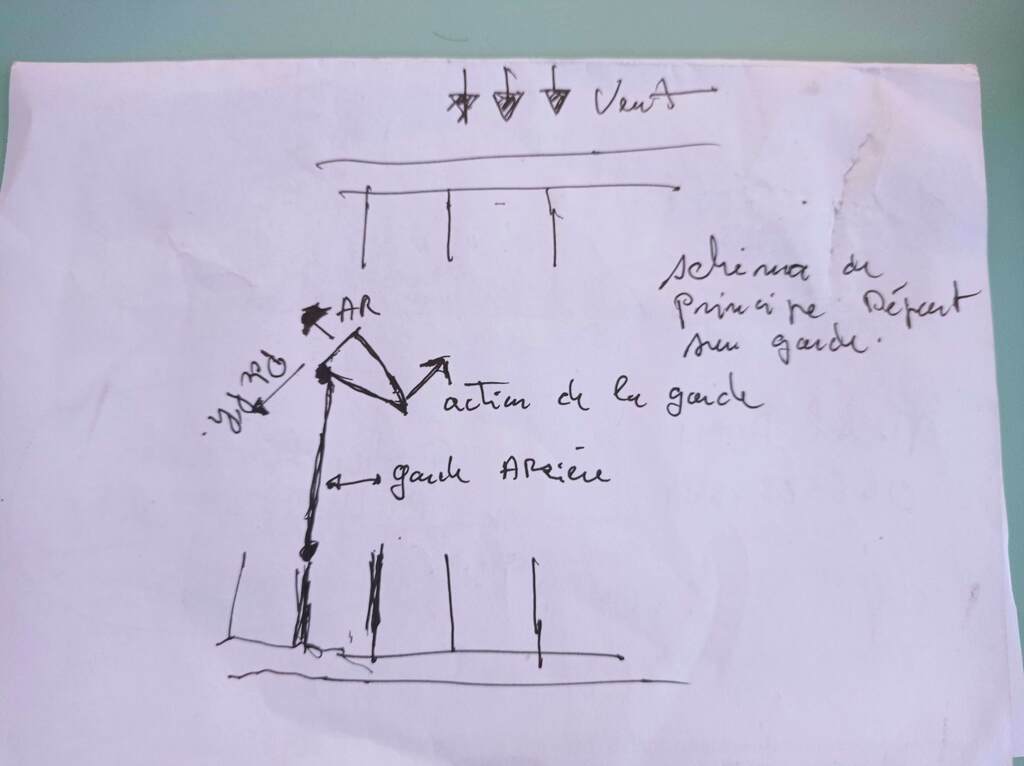 Vent
schéma de
Principe Départ
sur garde.
AR
action de la garde
garde ARrière